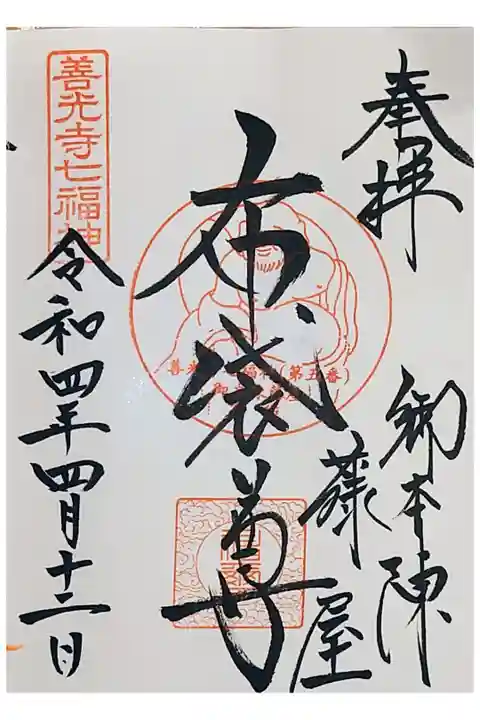 奉拝
御本陣
藤屋
布袋尊
善光寺七福神
(第五番)
令和四年四月十二日